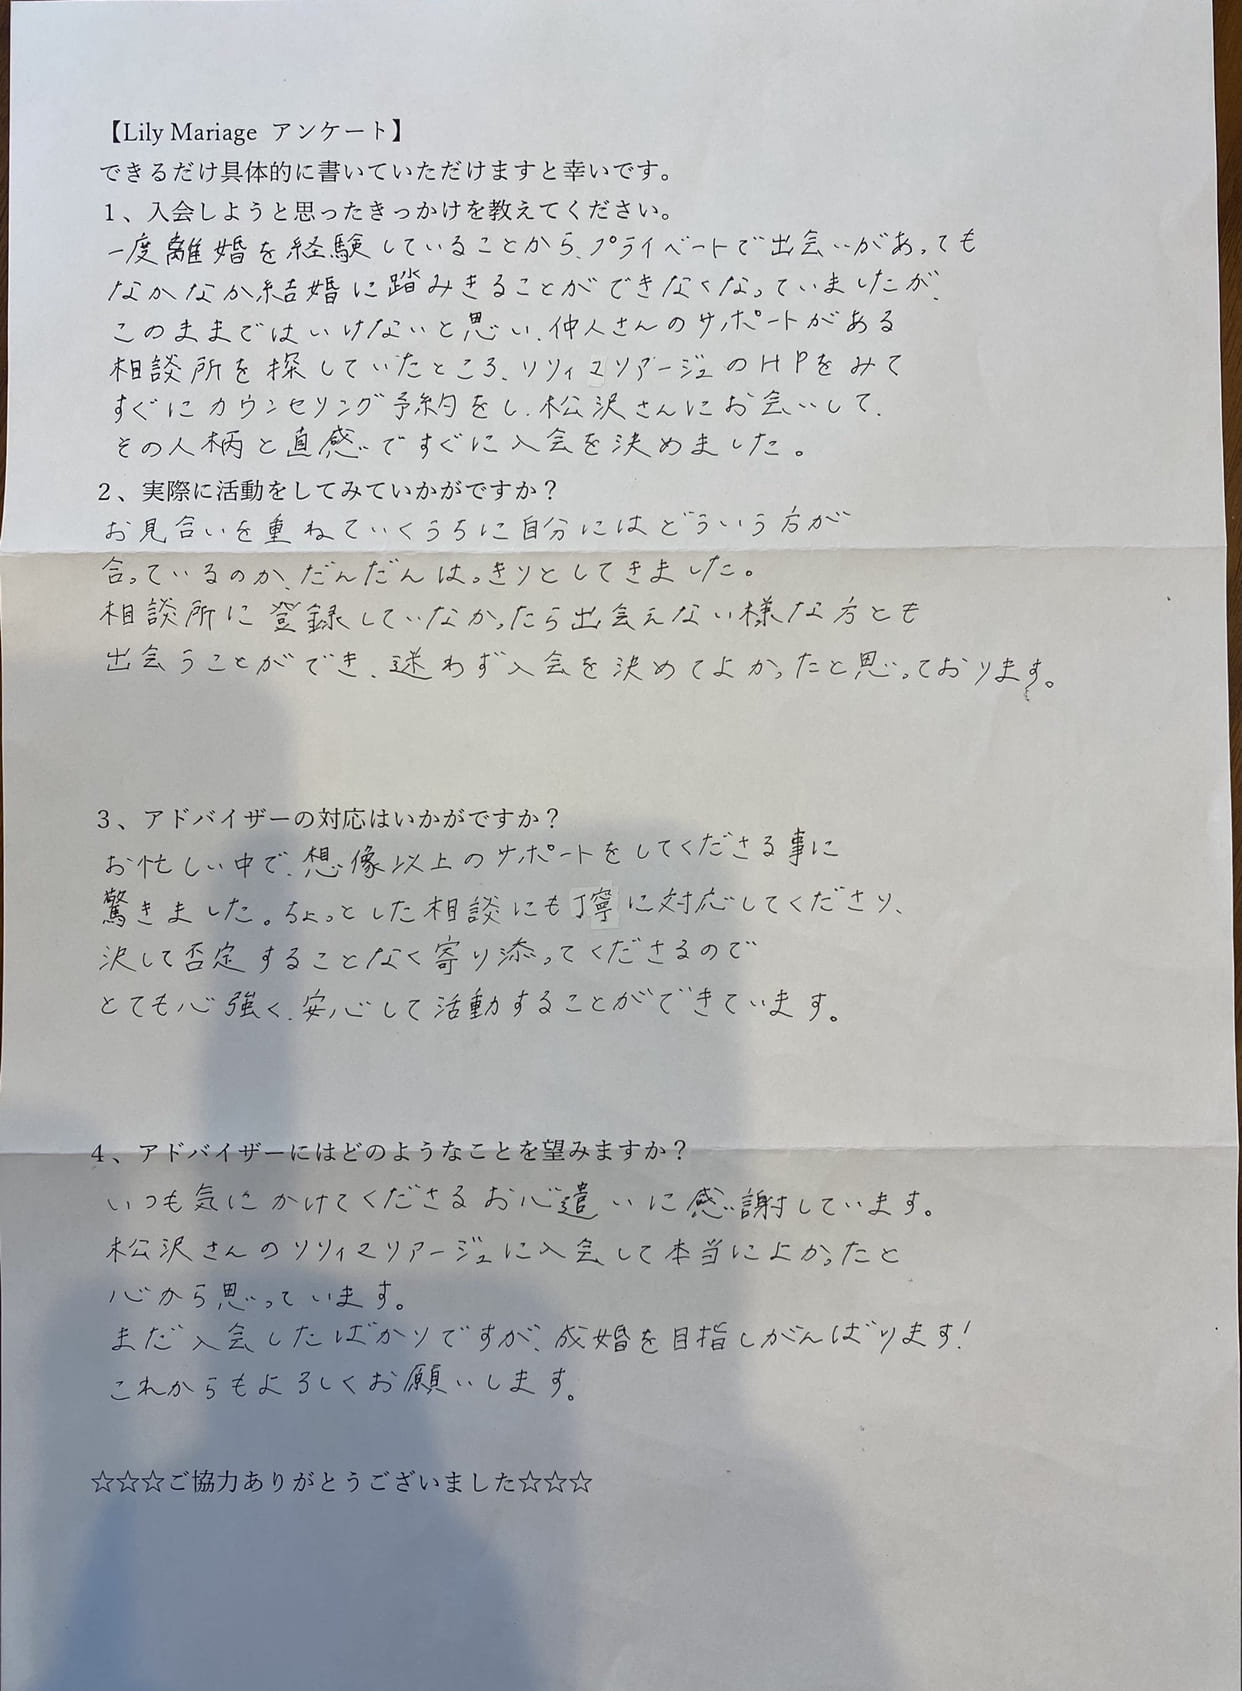 【Lily Mariage アンケート】
できるだけ具体的に書いていただけますと幸いです。
1、入会しようと思ったきっかけを教えてください。
一度離婚を経験していることから、プライベートで出会いがあっても
なかなか結婚に踏みきることができなくなっていましたが、
このままではいけないと思い、仲人さんのサポートがある
相談所を探していたところ、リリィマリアージュのHPをみて
すぐにカウンセリング予約をし、松沢さんにお会いして、
その人柄と直感ですぐに入会を決めました。
2、実際に活動をしてみていかがですか？
お見合いを重ねていくうちに自分にはどういう方が
合っているのか、だんだんはっきりとしてきました。
相談所に登録していなかったら出会えない様な方とも
出会うことができ、迷わず入会を決めてよかったと思っております。
3、アドバイザーの対応はいかがですか？
お忙しい中で、想像以上のサポートをしてくださる事に
驚きました。ちょっとした相談にも丁寧に対応してくださり、
決して否定することなく寄り添ってくださるので
とても心強く、安心して活動することができています。
4、アドバイザーにはどのようなことを望みますか？
いつも気にかけてくださるお心遣いに感謝しています。
松沢さんのリリィマリアージュに入会して本当によかったと
心から思っています。
まだ入会したばかりですが、成婚を目指しがんばります！
これからもよろしくお願いします。
☆☆☆ご協力ありがとうございました☆☆☆